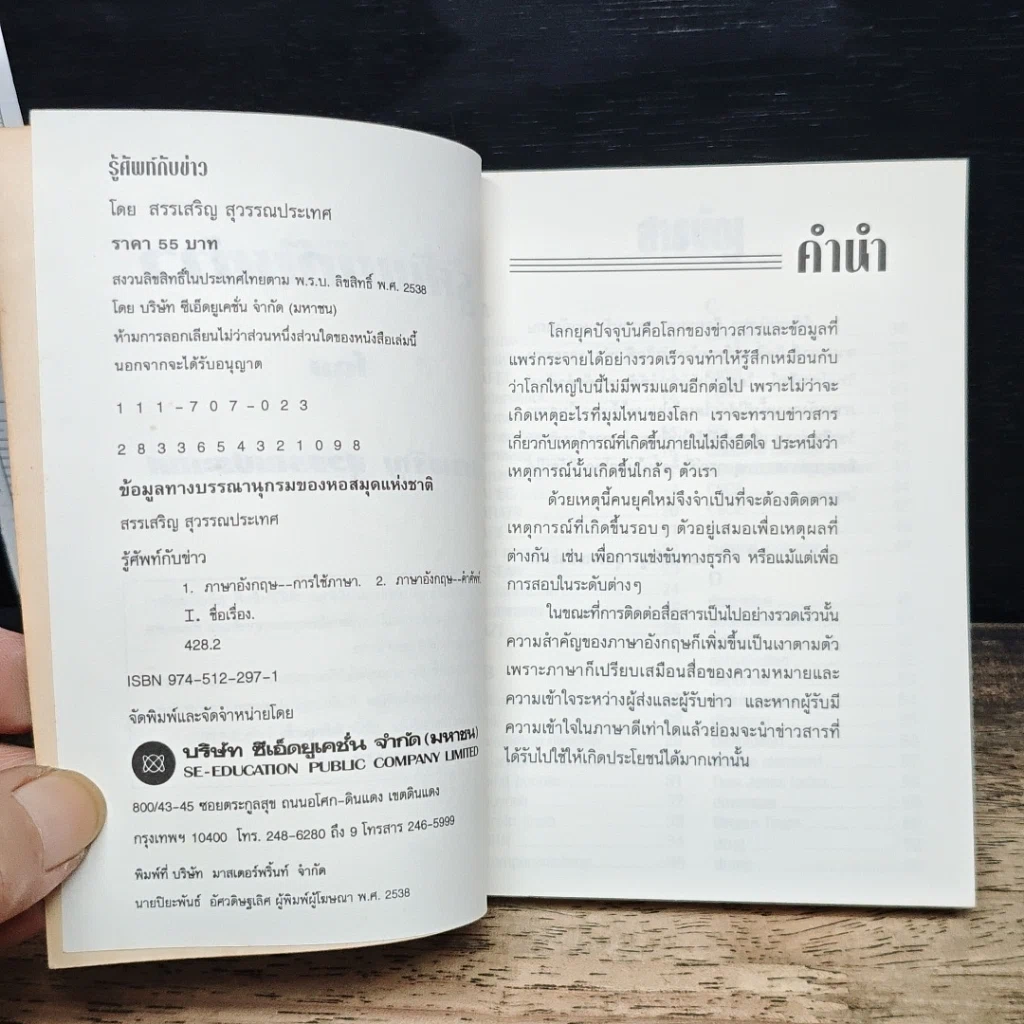 รู้ศัพท์กับข่าว
โดย สรรเสริญ สุวรรณประเทศ
ราคา 55 บาท
สงวนลิขสิทธิ์ในประเทศไทยตาม พ.ร.บ. ลิขสิทธิ์ พ.ศ. 2538
โดย บริษัท ซีเอ็ดยูเคชั่น จำกัด (มหาชน)
ห้ามการลอกเลียนไม่ว่าส่วนหนึ่งส่วนใดของหนังสือเล่มนี้
นอกจากจะได้รับอนุญาต
1 1 1 - 7 0 7 - 0 2 3
2 8 3 3 6 5 4 3 2 1 0 9 8
ข้อมูลทางบรรณานุกรมของหอสมุดแห่งชาติ
สรรเสริญ สุวรรณประเทศ
รู้ศัพท์กับข่าว
1. ภาษาอังกฤษ--การใช้ภาษา. 2. ภาษาอังกฤษ--คำศัพท์.
I. ชื่อเรื่อง.
428.2
ISBN 974-512-297-1
จัดพิมพ์และจัดจำหน่ายโดย
บริษัท ซีเอ็ดยูเคชั่น จำกัด (มหาชน)
SE-EDUCATION PUBLIC COMPANY LIMITED
800/43-45 ซอยตระกูลสุข ถนนอโศก-ดินแดง เขตดินแดง
กรุงเทพฯ 10400 โทร. 248-6280 ถึง 9 โทรสาร 246-5999
พิมพ์ที่ บริษัท มาสเตอร์พริ้นท์ จำกัด
นายปิยะพันธ์ อัศวดิษฐเลิศ ผู้พิมพ์ผู้โฆษณา พ.ศ. 2538
คำนำ
โลกยุคปัจจุบันคือโลกของข่าวสารและข้อมูลที่
แพร่กระจายได้อย่างรวดเร็วจนทำให้รู้สึกเหมือนกับ
ว่าโลกใหญ่ใบนี้ไม่มีพรมแดนอีกต่อไป เพราะไม่ว่าจะ
เกิดเหตุอะไรที่มุมไหนของโลก เราจะทราบข่าวสาร
เกี่ยวกับเหตุการณ์ที่เกิดขึ้นภายในไม่ถึงอึดใจ ประหนึ่งว่า
เหตุการณ์นั้นเกิดขึ้นใกล้ๆ ตัวเรา
ด้วยเหตุนี้คนยุคใหม่จึงจำเป็นที่จะต้องติดตาม
เหตุการณ์ที่เกิดขึ้นรอบๆ ตัวอยู่เสมอเพื่อเหตุผลที่
ต่างกัน เช่น เพื่อการแข่งขันทางธุรกิจ หรือแม้แต่เพื่อ
การสอบในระดับต่างๆ
ในขณะที่การติดต่อสื่อสารเป็นไปอย่างรวดเร็วนั้น
ความสำคัญของภาษาอังกฤษก็เพิ่มขึ้นเป็นเงาตามตัว
เพราะภาษาก็เปรียบเสมือนสื่อของความหมายและ
ความเข้าใจระหว่างผู้ส่งและผู้รับข่าว และหากผู้รับมี
ความเข้าใจในภาษาดีเท่าใดแล้วย่อมจะนำข่าวสารที่
ได้รับไปใช้ให้เกิดประโยชน์ได้มากเท่านั้น